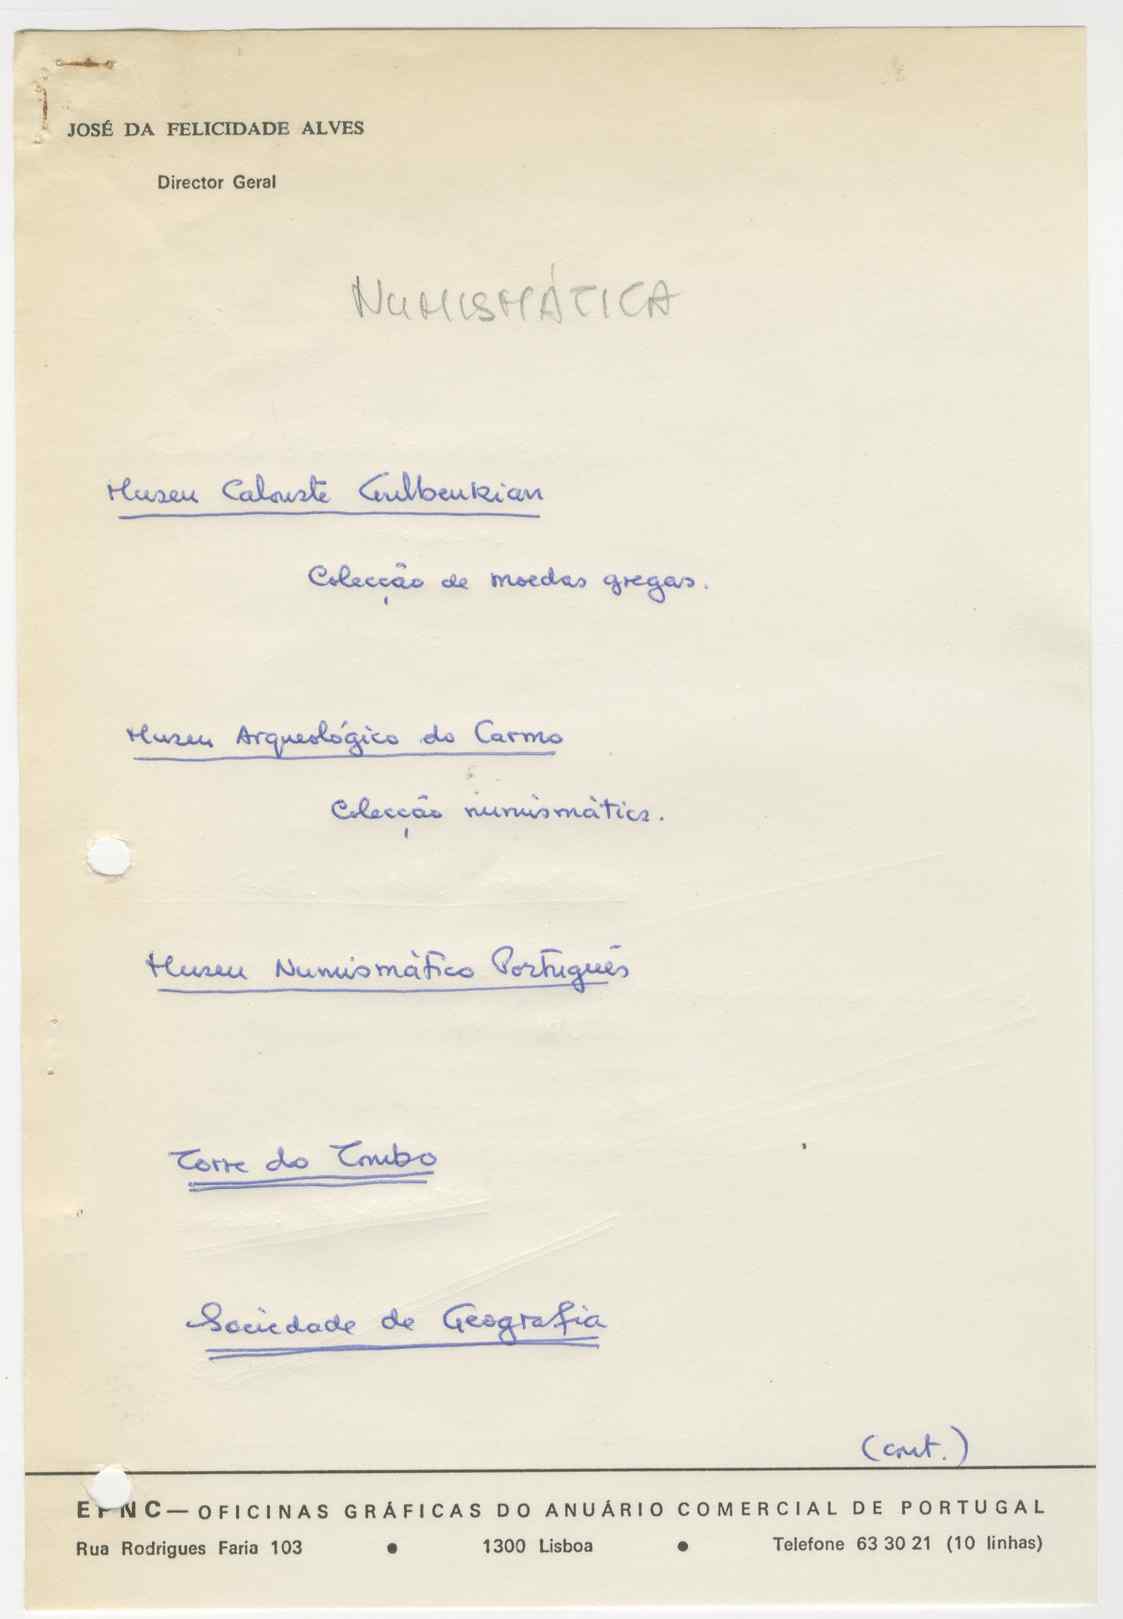 JOSÉ DA FELICIDADE ALVES
Director Geral
NUMISMÁTICA
Museu Calouste Gulbenkian
Colecção de moedas gregas.
Museu Arqueológico do Carmo
Colecção numismática.
Museu Numismático Português
Torre do Tombo
Sociedade de Geografia
(cont.)
— OFICINAS GRÁFICAS DO ANUÁRIO COMERCIAL DE PORTUGAL
Rua Rodrigues Faria 103 • 1300 Lisboa • Telefone 63 30 21 (10 linhas)